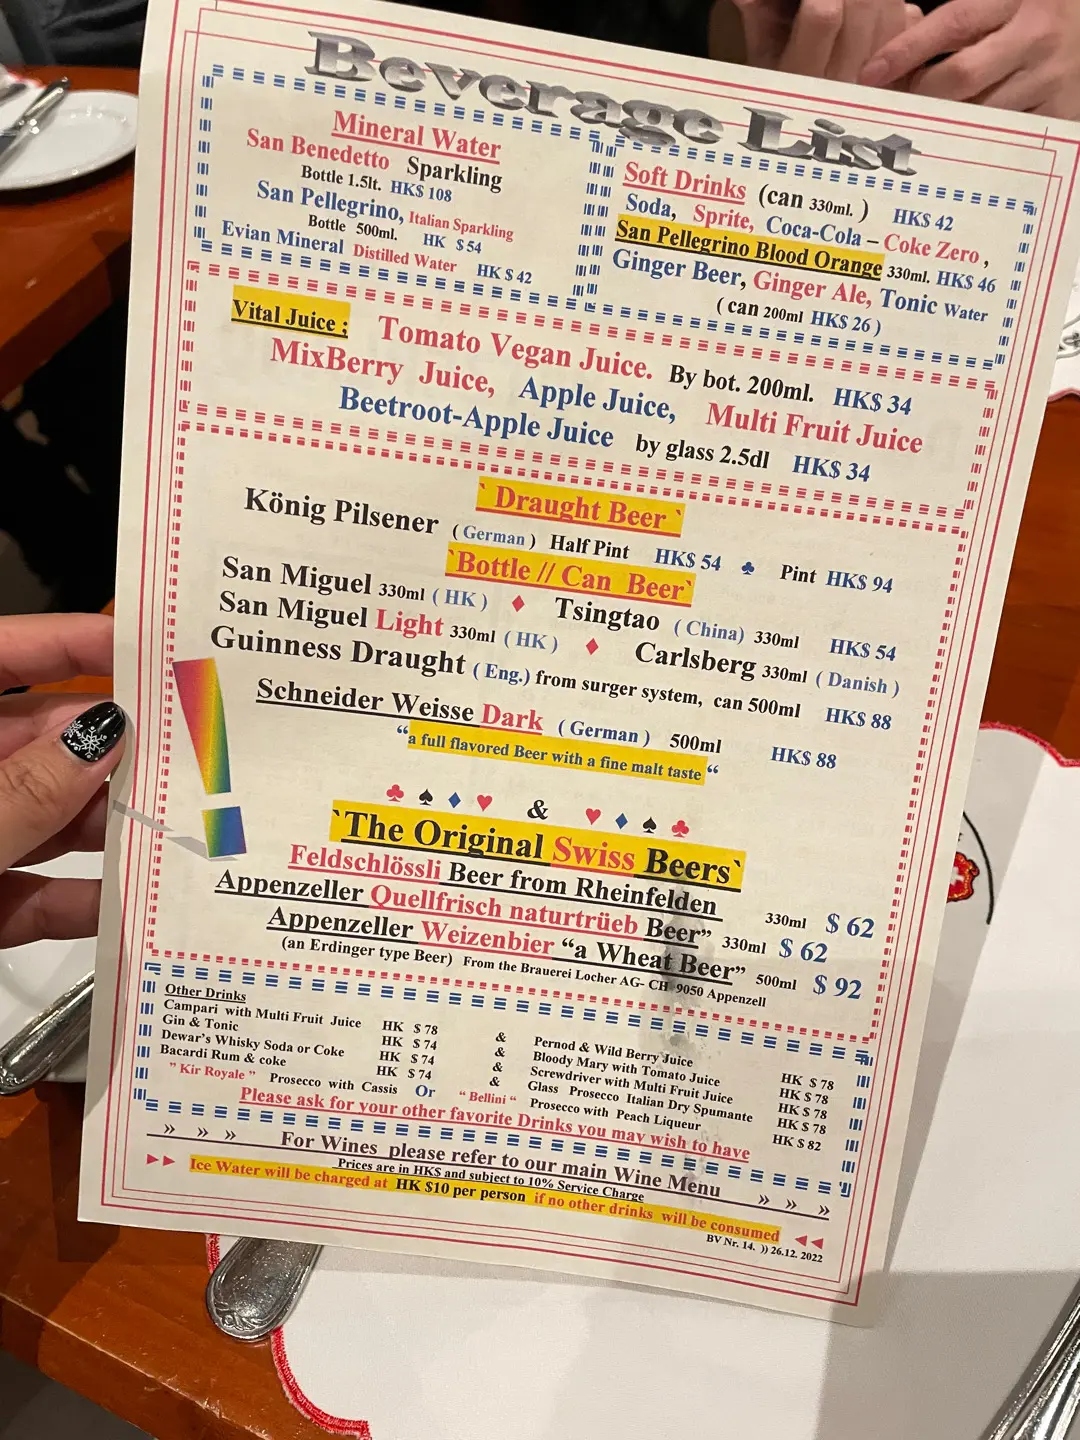 Beverage List
Mineral Water
San Benedetto Sparkling
Bottle 1.5lt. HK$ 108
San Pellegrino, Italian Sparkling
Bottle 500ml. HK $ 54
Evian Mineral Distilled Water HK $ 42
Soft Drinks (can 330ml. ) HK$ 42
Soda, Sprite, Coca-Cola – Coke Zero ,
San Pellegrino Blood Orange 330ml. HK$ 46
Ginger Beer, Ginger Ale, Tonic Water
( can 200ml HK$ 26 )
Vital Juice ; Tomato Vegan Juice. By bot. 200ml. HK$ 34
MixBerry Juice, Apple Juice, Multi Fruit Juice
Beetroot-Apple Juice by glass 2.5dl HK$ 34
` Draught Beer `
König Pilsener ( German ) Half Pint HK$ 54 ♣ Pint HK$ 94
`Bottle // Can Beer`
San Miguel 330ml ( HK ) ♦ Tsingtao ( China) 330ml HK$ 54
San Miguel Light 330ml ( HK ) ♦ Carlsberg 330ml ( Danish )
Guinness Draught ( Eng.) from surger system, can 500ml HK$ 88
Schneider Weisse Dark ( German ) 500ml HK$ 88
“a full flavored Beer with a fine malt taste “
!
♣ ♠ ♦ ♥ & ♥ ♦ ♠ ♣
`The Original Swiss Beers`
Feldschlössli Beer from Rheinfelden 330ml $ 62
Appenzeller Quellfrisch naturtrüeb Beer” 330ml $ 62
Appenzeller Weizenbier “a Wheat Beer” 500ml $ 92
(an Erdinger type Beer) From the Brauerei Locher AG- CH 9050 Appenzell
Other Drinks
Campari with Multi Fruit Juice HK $ 78 & Pernod & Wild Berry Juice HK $ 78
Gin & Tonic HK $ 74 & Bloody Mary with Tomato Juice HK $ 78
Dewar's Whisky Soda or Coke HK $ 74 & Screwdriver with Multi Fruit Juice HK $ 78
Bacardi Rum & coke HK $ 74 & Glass Prosecco Italian Dry Spumante HK $ 78
” Kir Royale ” Prosecco with Cassis Or “ Bellini “ Prosecco with Peach Liqueur HK $ 82
Please ask for your other favorite Drinks you may wish to have
» » » For Wines please refer to our main Wine Menu » » »
Prices are in HK$ and subject to 10% Service Charge
►► Ice Water will be charged at HK $10 per person if no other drinks will be consumed ◄◄
BV Nr. 14. )) 26.12. 2022